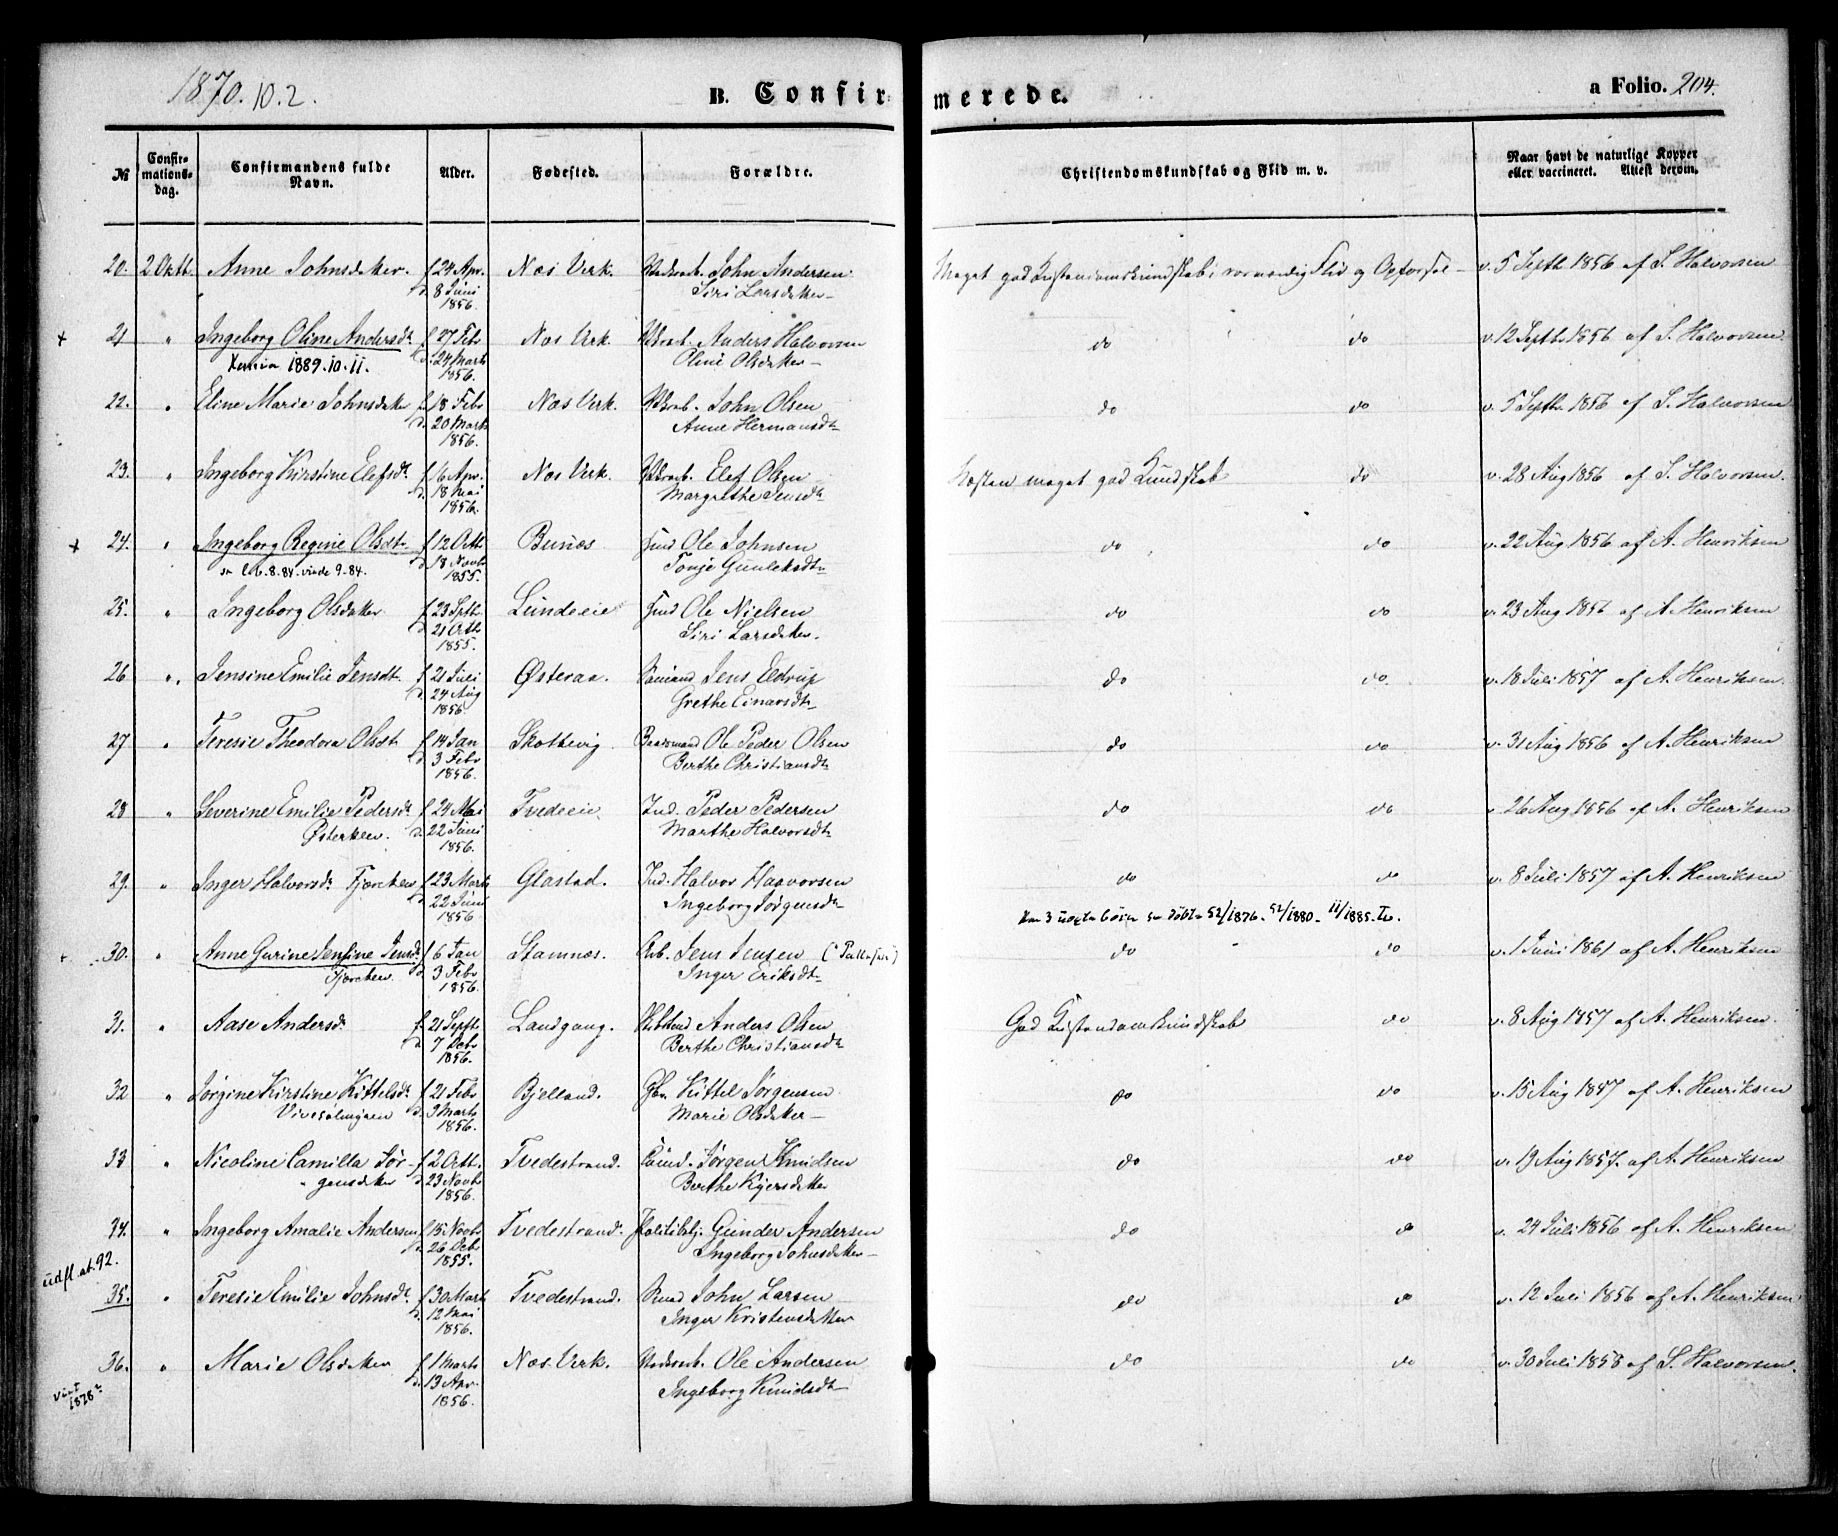 1870.10.2.
B. Confirmerede.
a Folio. 204.
№ Confirmationsdag. Confirmandens fulde Navn. Alder. Fødested. Forældre. Christendomskundskab og Flid m. v. Naar havt de naturlige Kopper eller vaccineret. Attest derom.
20. 2 Oktb. Anne Johnsdatter. f 24 Apr. Næs Verk. John Andersen Meget god Kristendomskundskab, Flid og Opførsel - v. 5 Septb 1856 af S. Halvorsen
d. 8 Juni Siri Larsdatter
1856.
+ 21 " Ingeborg Oline Andersdt f 27 Feb Næs Verk. Anders Halvorsen do do v. 12 Septb 1856 af S. Halvorsen
1889.10.11. d. 24 Marts Oline Olsdatter
1856.
22. " Eline Marie Johnsdatter f 18 Feb Næs Verk. John Olsen do do v. 5 Septb. 1856 af S. Halvorsen
d. 20 Marts Anne Hermansdt
1856.
23. " Ingeborg Kirstine Elefsdt f 6 Apr. Næs Verk. Elef Olsen Næsten meget god Kundskab do v. 28 Aug 1856 af S. Halvorsen.
d. 18 Mai Margrethe Jensdt
1856.
+ 24. " Ingeborg Regine Olsdt f 12 Octb Bunæs Ole Johnsen do do v. 22 Aug 1856 af A. Henriksen
8.84. 9-84. d. 18 Novb Tonje Gunleksdt
1855.
25. " Ingeborg Olsdatter f 23 Sptb Lundeeie Ole Nielsen do do v. 23 Aug 1856 af A. Henriksen
d. 21 Octb Siri Larsdatter.
1855.
26 " Jensine Emilie Jensdt. f 21 Juli Østeraa. Jens Eldrup do do v. 18 Juli 1857 af A. Henriksen
d. 24 Aug Grethe Einarsdt
1856
27 " Teresie Theodora Olsdt f 14 Jan Skottevig Ole Peder Olsen do do v. 31 Aug 1856 af A. Henriksen
d. 3 Feb Berthe Christiansdt
1856.
28 " Severine Emilie Pedersdt f 24 Mai Tvedeeie Ind. Peder Pedersen do do v. 26 Aug 1856 af A. Henriksen
Østerklev. d. 22 Juni Marthe Halvorsdt
1856.
29. " Inger Halvorsdt Fjærekev f 23 Marts Glastad. Ind. Halvor Haavorsen do do v. 8 Juli 1857 af A. Henriksen
d. 22 Juni Ingeborg Jørgensdt
1856 Har 3 uægte børn døbte 52/1876. 52/1880. 11/1885.
+ 30. " Anne Gurine Jensine Jensdt f 6 Jan Stamnæs. Arb. Jens Jensen do do v. 1 Juni 1861 af A. Henriksen
d. 3 Feb Inger Eriksdt
1856.
31. " Aase Andersdt f 21 Septb Landgang. Anders Olsen God Kristendomskundskab do v. 8 Aug 1857 af A. Henriksen.
d. 7 Decb Berthe Christiansdt
1856.
32 " Jørgine Kirstine Kittelsdt f 21 Feb Bjelland. Kittel Jørgensen do do v. 15 Aug 1857 af A. Henriksen
d. 9 Marts Marie Olsdatter
1856.
33 " Nicoline Camilla Jør- f 2 Octb. Tvedestrand. Jørgen Knudsen do do v. 19 Aug 1857. af A. Henriksen
gensdatter d. 23 Novb Berthe Kjersdatter
1856.
34. " Ingeborg Amalie Andersen f 15 Novb Tvedestrand. Politibtj. Gunder Andersen do do v. 24 Juli 1856 af A. Henriksen
d. 26 Decb Ingeborg Johnsdatter
1855.
udfl. at. 92.
35. " Teresie Emilie Johnsdt f 30 Marts Tvedestrand. John Larsen do do v. 12 Juli 1856 af A. Henriksen
d. 12 Mai Inger Kristensdatter
1856.
36. " Marie Olsdatter f 1 Marts Næs Verk. Ole Andersen do do v. 30 Juli 1858 af S. Halvorsen.
1878 d. 13 Apr. Ingeborg Knudsdt
1856.